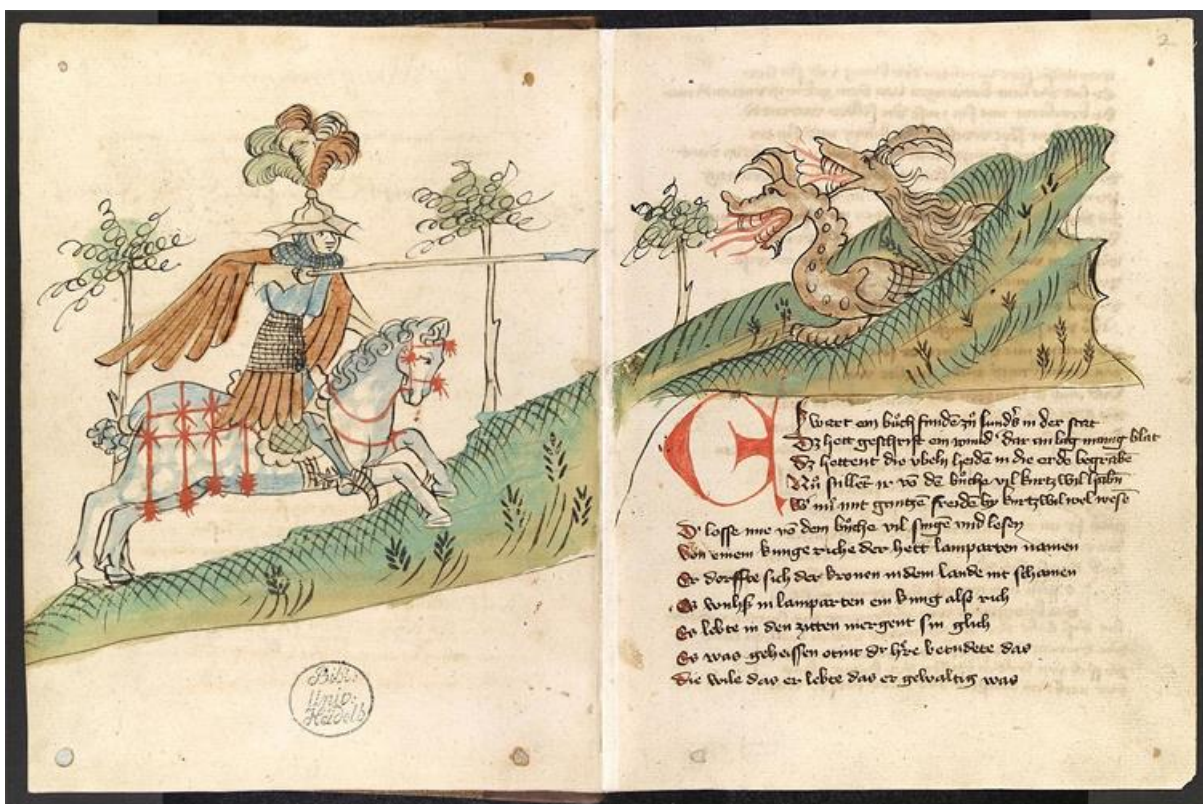 Bibl.
Univ.
Heidelb.
2
Es wart ein bůch fundē zů sunds in der stat
Dz hett geschrift ein wund' dar an lag manig blat
Dz hettent die vbeln heidē in die erde begrabē
Nů sullēt ir vō dē bůche vil kurtzwil habē
mit gantzen freiden by kurtzwil wol wesē
D' losse ime vō dem bůche vil singen vnd lesen
Von einem kunge riche der hett lamparten namen
Er dorffte sich der kronen in dem lande nit schamen
Es wuhß in lamparten ein kung alß rich
Er lebte in den zitten niergent sin glich
Er was geheissen otnit d' h're betudete das
Die wile das er lebte das er gewaltig was